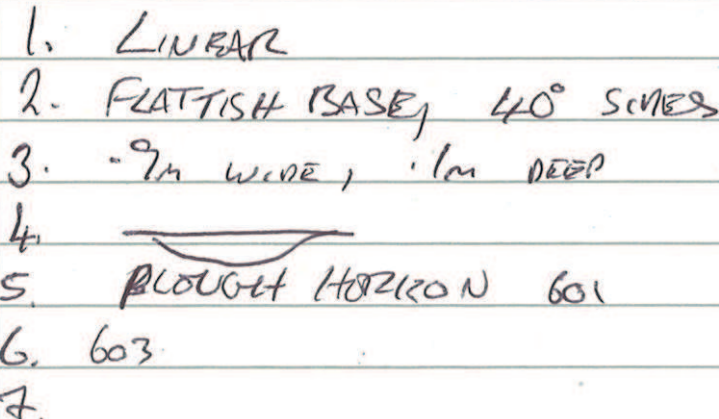 1. LINEAR
2. FLATTISH BASE, 40° SIDES
3. .9m WIDE, .1m DEEP
4.
5. PLOUGH HORIZON 601
6. 603
7.